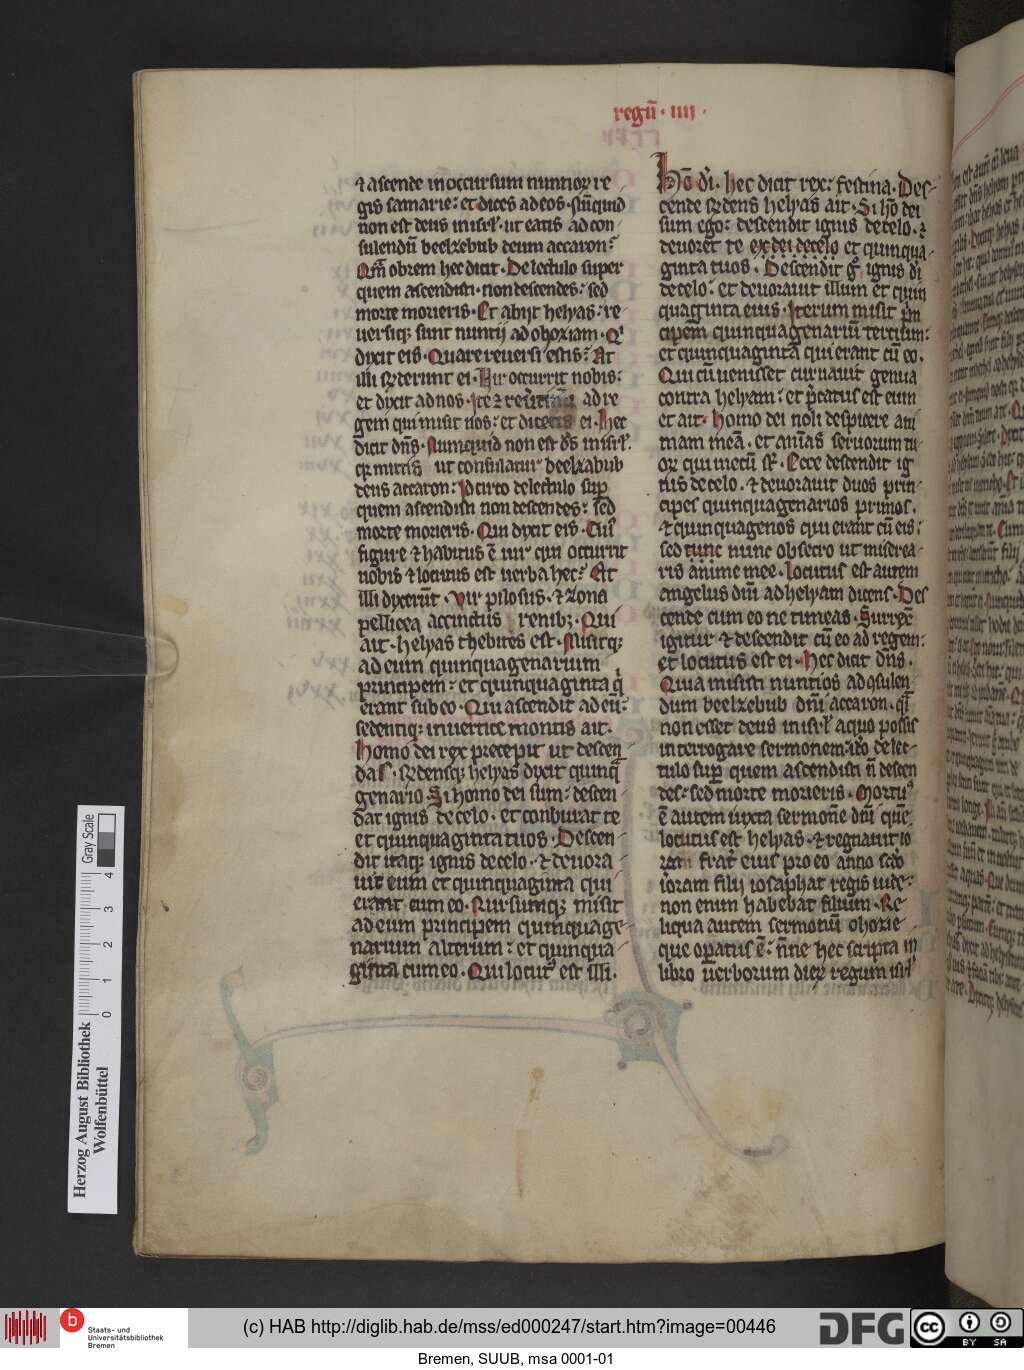 regū · iiii ·
⁊ ascende in occursum nuntioꝝ re
gis samarie: et dices ad eos · Nūquid
non est deus in isrl̄ · ut eatis ad con
sulendū beelzebub deum accaron:
Qm̄ obrem hec dicit · De lectulo super
quem ascendisti · non descendes: sed
morte morieris · Et abijt helyas: re
uersiqꝫ sunt nuntij ad ohoziam · Qͥ
dixit eis · Quare reuersi estis: At
illi rn̄derunt ei · Vir occurrit nobis:
et dixit ad nos · Ite ⁊ reūtimī ad re
gem qui misit uos: et dicetis ei · Hec
dicit dn̄s · Numquid non est ds̄ in isrl̄ ·
qꝛ mittis ut consulatur beelzabub
deus accaron: Idcirco de lectulo suꝑ
quem ascendisti non descendes: sed
morte morieris · Qui dixit eis · Cui
figure ⁊ habitus ē uir qui occurrit
nobis ⁊ locutus est uerba hec: At
illi dixerūt · Vir pilosus · ⁊ zona
pellicea accinctus renibꝫ · Qui
ait · helyas thebites est · Misitqꝫ
ad eum quinquagenarium
principem: et quinquaginta qͥ
erant sub eo · Qui ascendit ad eū:
sedentiqꝫ in uertice montis ait ·
Homo dei rex precepit ut descen
das · rn̄densqꝫ helyas dixit quinq̄
genario · Si homo dei sum: descen
dat ignis de celo · et conburat te
et quinquaginta tuos · Descen
dit itaqꝫ ignis de celo · ⁊ deuora
uit eum et quinquaginta qui
erant cum eo · Rursumqꝫ misit
ad eum principem quinquage
narium alterum: et quinqua
ginta cum eo · Qui locutꝰ est illi ·
Hō dī · hec dicit rex: festina · Des
cende rn̄dens helyas ait · Si hō dei
sum ego: descendit ignis de celo · ⁊
deuoret te ex dei de celo et quinqua
ginta tuos · Descendit gͦ ignis dī
de celo: et deuorauit illum et quin
quaginta eius · Iterum misit pͥn
cipem quinquagenariū tertium:
et quinquaginta qui erant cū eo ·
Qui cū uenisset curuauit genua
contra helyam: et p̄catus est eum
et ait · Homo dei noli despicere ani
mam meā · et aīas seruorum tu
oꝝ qui mecū st̄ · Ecce descendit ig
nis de celo · ⁊ deuorauit duos prin
cipes quinquagenarios primos ·
⁊ quinquagenos qui erant cū eis:
sed tunc nunc obsecro ut miserea
ris anime mee · Locutus est autem
angelus dn̄i ad helyam dicens · Des
cende cum eo ne timeas · Surrexit
igitur ⁊ descendit cū eo ad regem:
et locutus est ei · Hec dicit dn̄s ·
Quia misisti nuntios ad ꝯsulen
dum beelzebub dn̄m accaron · qͣsi
non esset deus in isrl̄ a quo possis
interrogare sermonem: iďo de lec
tulo suꝑ quem ascendisti n̄ descen
des: sed morte morieris · Mortuꝰ
ē autem iuxta sermonē dn̄i quē
locutus est helyas · ⁊ regnauit io
ram frat̄ eius pro eo anno scďo
ioram filij iosaphat regis iude:
non enim habebat filium · Re
liqua autem sermonū ohozie
que oꝑatus ē: n̄ne hec scripta in
libro uerborum dieꝝ regum isrl̄
Gray Scale
0 1 2 3 4
Herzog August Bibliothek
Wolfenbüttel
b Staats- und
Universitätsbibliothek
Bremen
(c) HAB http://diglib.hab.de/mss/ed000247/start.htm?image=00446
DFG
cc BY SA
Bremen, SUUB, msa 0001-01